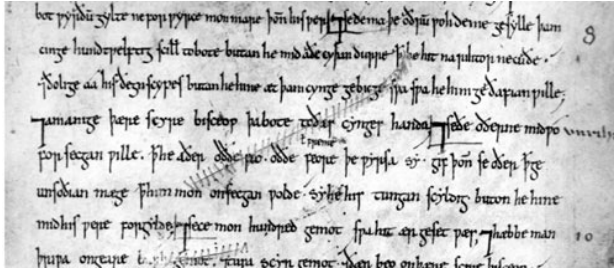 bot ƿyrðu gylte ne por ƿyrce mon mare þoñ his ƿer ⁊ se dema þe oðrū poh deme gesylle þam
cinge hundtƿelftig scill to bote butan he mid aðe cyþan durre þ he hit na rihtor ne cuðe.
⁊ ðolige aa his ðegnscypes butan he hine æt þam cynge gebicge sƿa sƿa he him geðafian ƿille.
⁊ amanige þære scyre bisceop þa bote to ðæs cynges handa ⁊ se ðe oðerne mid ƿo
forsecgan ƿille þ he aðer oððe feo oððe feore þe ƿyrsa sy. gif þoñ se oðer þ ge
unsoðian mæge þ him mon onsecgan ƿolde sy he his tungan scyldig buton he hine
mid his ƿere forgylde ⁊ sece mon hundred gemot sƿa hit ær geset ƿæs ⁊ hæbbe man
þriƿa on geare gemot ⁊ tuƿa scyr gemot
8
10